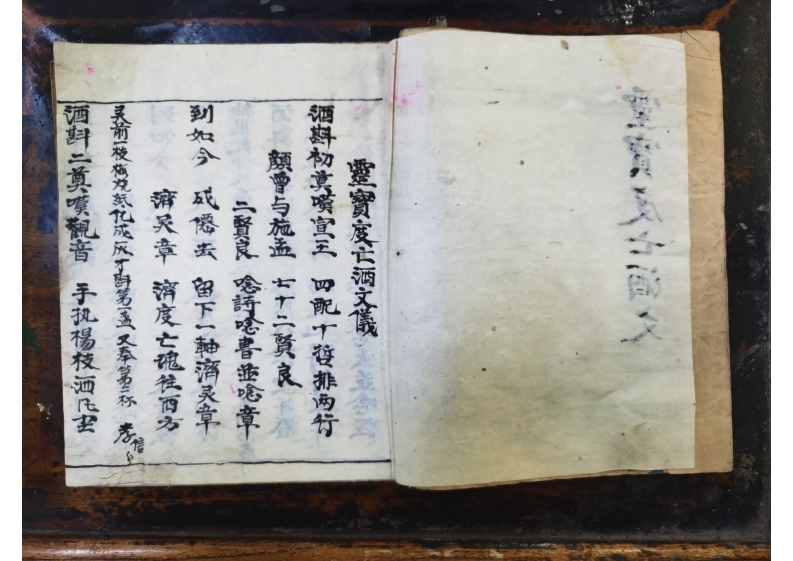 靈寳度亡酒文
靈寳度亡酒文儀
酒斟初奠嘆宣王 四配十哲排两行
顔曾与施孟 七十二賢良
二賢良 唸詩唸書並唸章
到如今 成僊去 留下一軸濟灵章
濟灵章 濟度亡魂往西方
灵前一枝梅 燒紙化成灰 才斟第一盃 又奉第二杯 孝信
酒斟二奠嘆觀音 手执楊枝洒凡